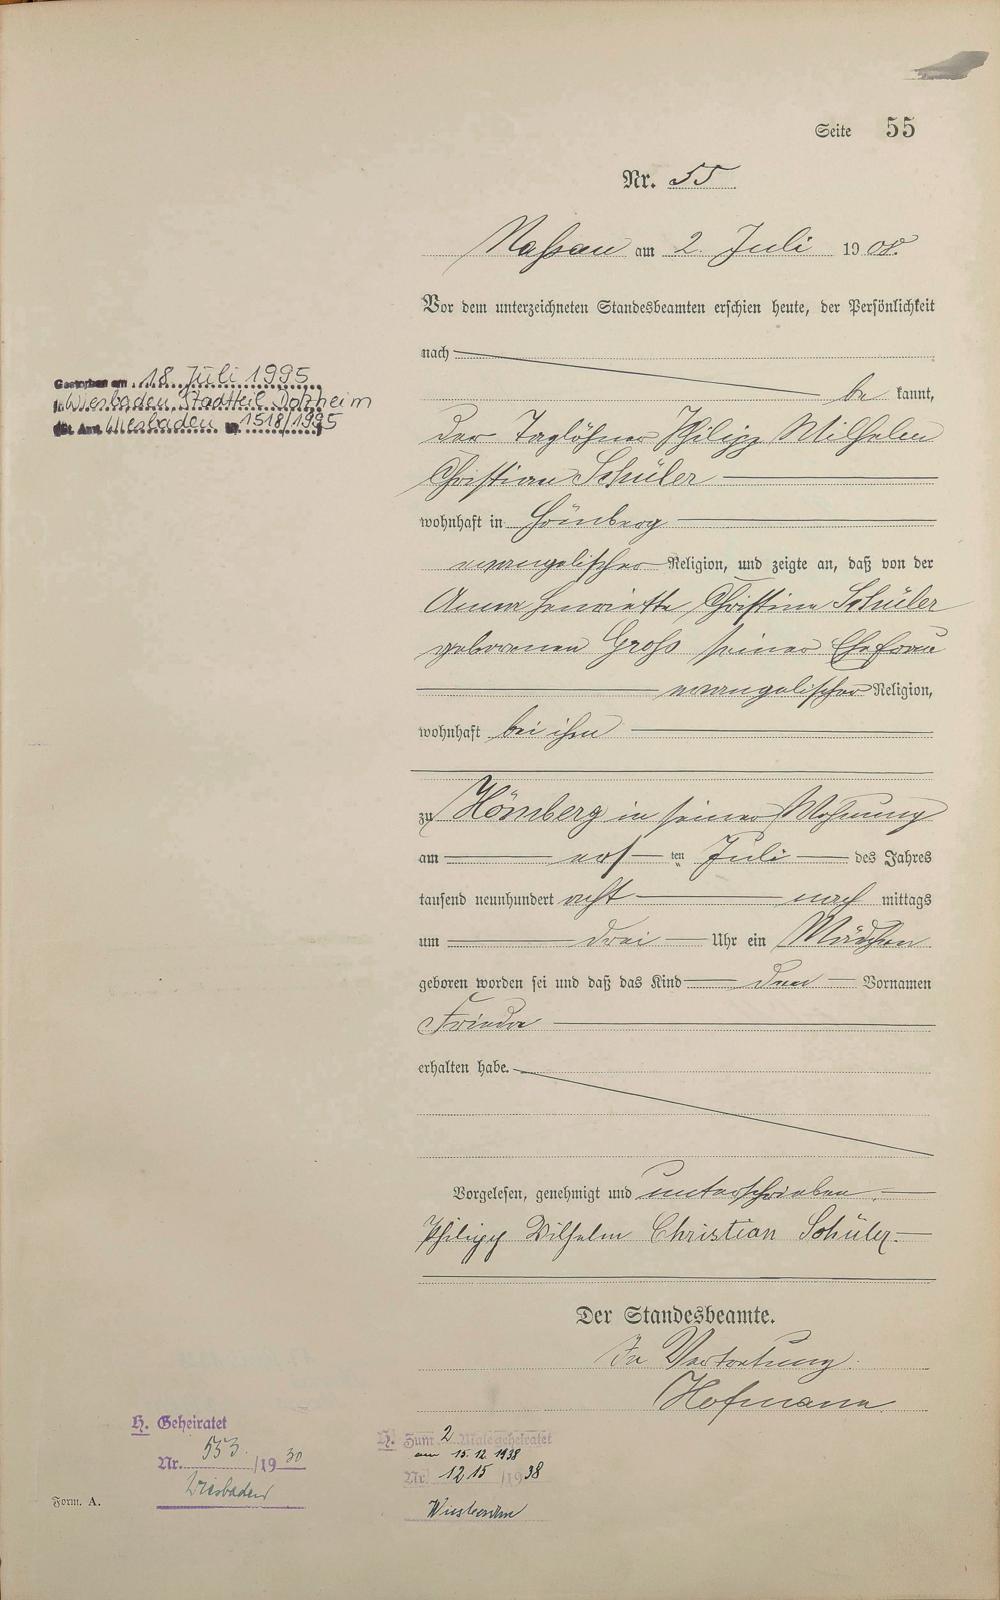 Seite 55
Nr. 55
Nassau am 2. Juli 1908.
Vor dem unterzeichneten Standesbeamten erschien heute, der Persönlichkeit
nach
be kannt,
der Taglöhner Philipp Wilhelm
Christian Schüler
wohnhaft in Hömberg
evangelischer Religion, und zeigte an, daß von der
Anna Henriette Christine Schüler
geborenen Groß seiner Ehefrau
evangelischer Religion,
wohnhaft bei ihm
zu Hömberg in seiner Wohnung
am ersten Juli des Jahres
tausend neunhundert acht nach mittags
um drei Uhr ein Mädchen
geboren worden sei und daß das Kind den Vornamen
Frieda
erhalten habe.
Vorgelesen, genehmigt und unterschrieben.
Philipp Wilhelm Christian Schüler.
Der Standesbeamte.
In Vertretung.
Hofmann
Gestorben am 18. Juli 1995
in Wiesbaden, Stadtteil Dotzheim
(St. Amt Wiesbaden Nr. 1518/1995
H. Geheiratet
Nr. 553 /1930
Wiesbaden
H. Zum 2 Male geheiratet
am 15.12.1938
Nr. 1215 /1938
Wiesbaden
Form. A.